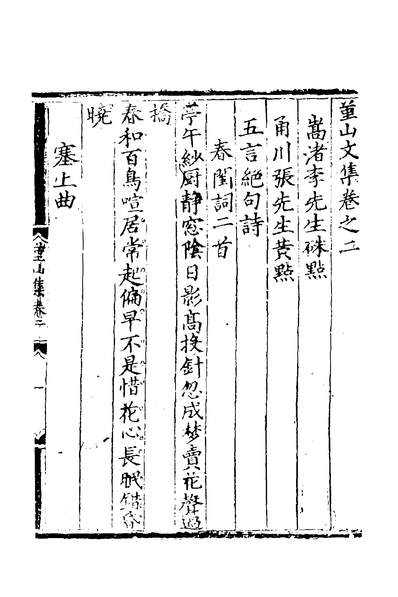 堇山文集卷之二
嵩渚李先生硃點
甬川張先生黄點
五言絕句詩
春閨詞二首
亭午紗厨静窓陰日影髙投針忽成梦賣花聲過
橋
春和百鳥喧居常起偏早不是惜花心長眠錯昏
曉
塞上曲
堇山集卷二
一